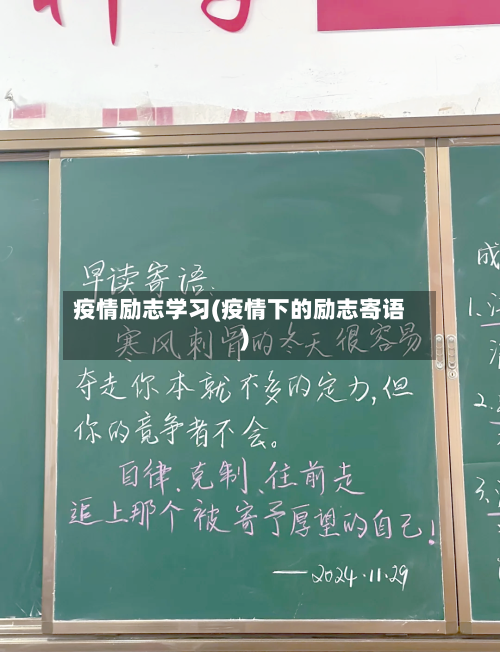 早读寄语:
疫情励志学习(疫情下的励志寄语
)
寒风刺骨的冬天很容易
夺走你本就不多的定力,但
你的竞争者不会。
自律、克制、往前走
追上那个被寄予厚望的自己!
——2024.11.29
成
1.
2.
3.